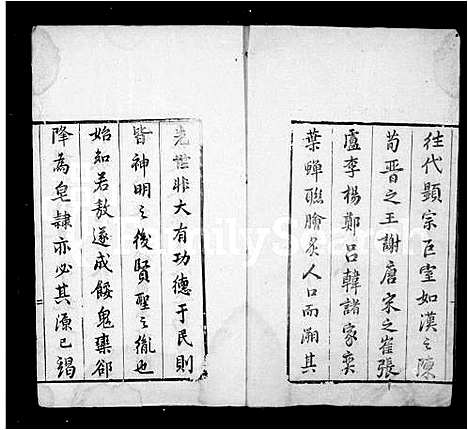 往代顯宗巨室如漢之陳
荀晋之王謝唐宋之崔張
盧李楊鄭呂韓諸家奕
葉蟬聯膾炙人口而溯其
先世非大有功德于民則
皆神明之後賢聖之胤也
始知若敖遂成餒鬼欒郤
降為皂隷亦必其源已竭
FamilySearch